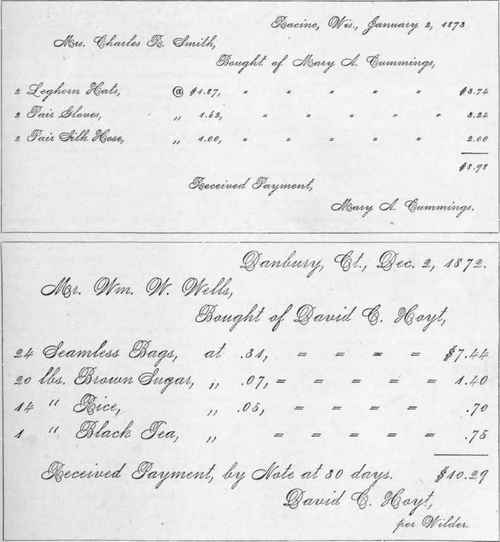 Racine, Wis., January 2, 1873
Mrs. Charles R. Smith,
Bought of Mary A. Cummings,
2 Leghorn Hats, @ $1.87, " " " " " $3.74
2 Pair Gloves, ,, 1.62, " " " " " 3.24
2 Pair Silk Hose, ,, 1.00, " " " " " 2.00
$8.98
Received Payment,
Mary A. Cummings.
Danbury, Ct., Dec. 2, 1872.
Mr. Wm. W. Wells,
Bought of David C. Hoyt,
24 Seamless Bags, at .31, = = = = $7.44
20 lbs. Brown Sugar, ,, .07, = = = = 1.40
14 " Rice, ,, .05, = = = = .70
1 " Black Tea, ,, = = = = .75
Received Payment, by Note at 30 days. $10.29
David C. Hoyt,
per Wilder.